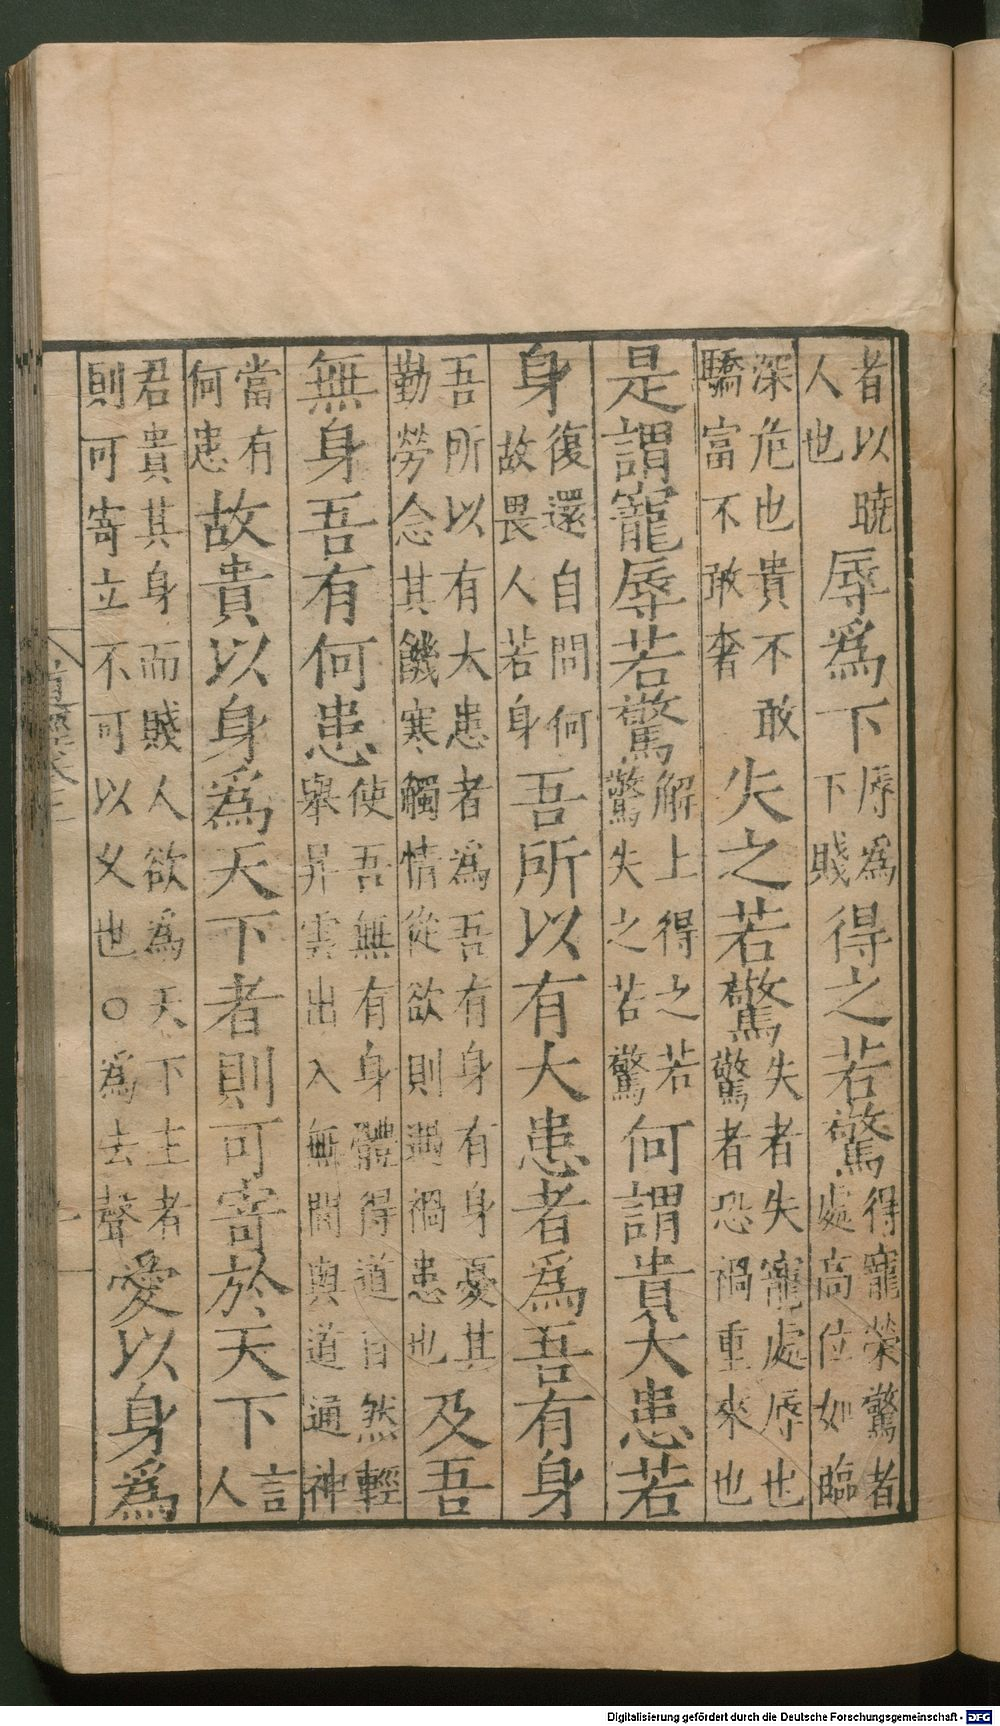 者以曉人也辱爲下辱爲下賤得之若驚得寵榮驚者處高位如臨
深危也貴不敢驕富不敢奢失之若驚失者失寵處辱也驚者恐禍重來也
是謂寵辱若驚解上得之若驚失之若驚何謂貴大患若
身復還自問何故畏人若身吾所以有大患者爲吾有身
吾所以有大患者爲吾有身有身憂其勤勞念其饑寒觸情從欲則遇禍患也及吾
無身吾有何患使吾無有身體得道自然輕舉昇雲出入無間與道通神
當有何患故貴以身爲天下者則可寄於天下言人
君貴其身而賤人欲爲天下主者則可寄立不可以久也○爲去聲愛以身爲
Digitalisierung gefördert durch die Deutsche Forschungsgemeinschaft - DFG